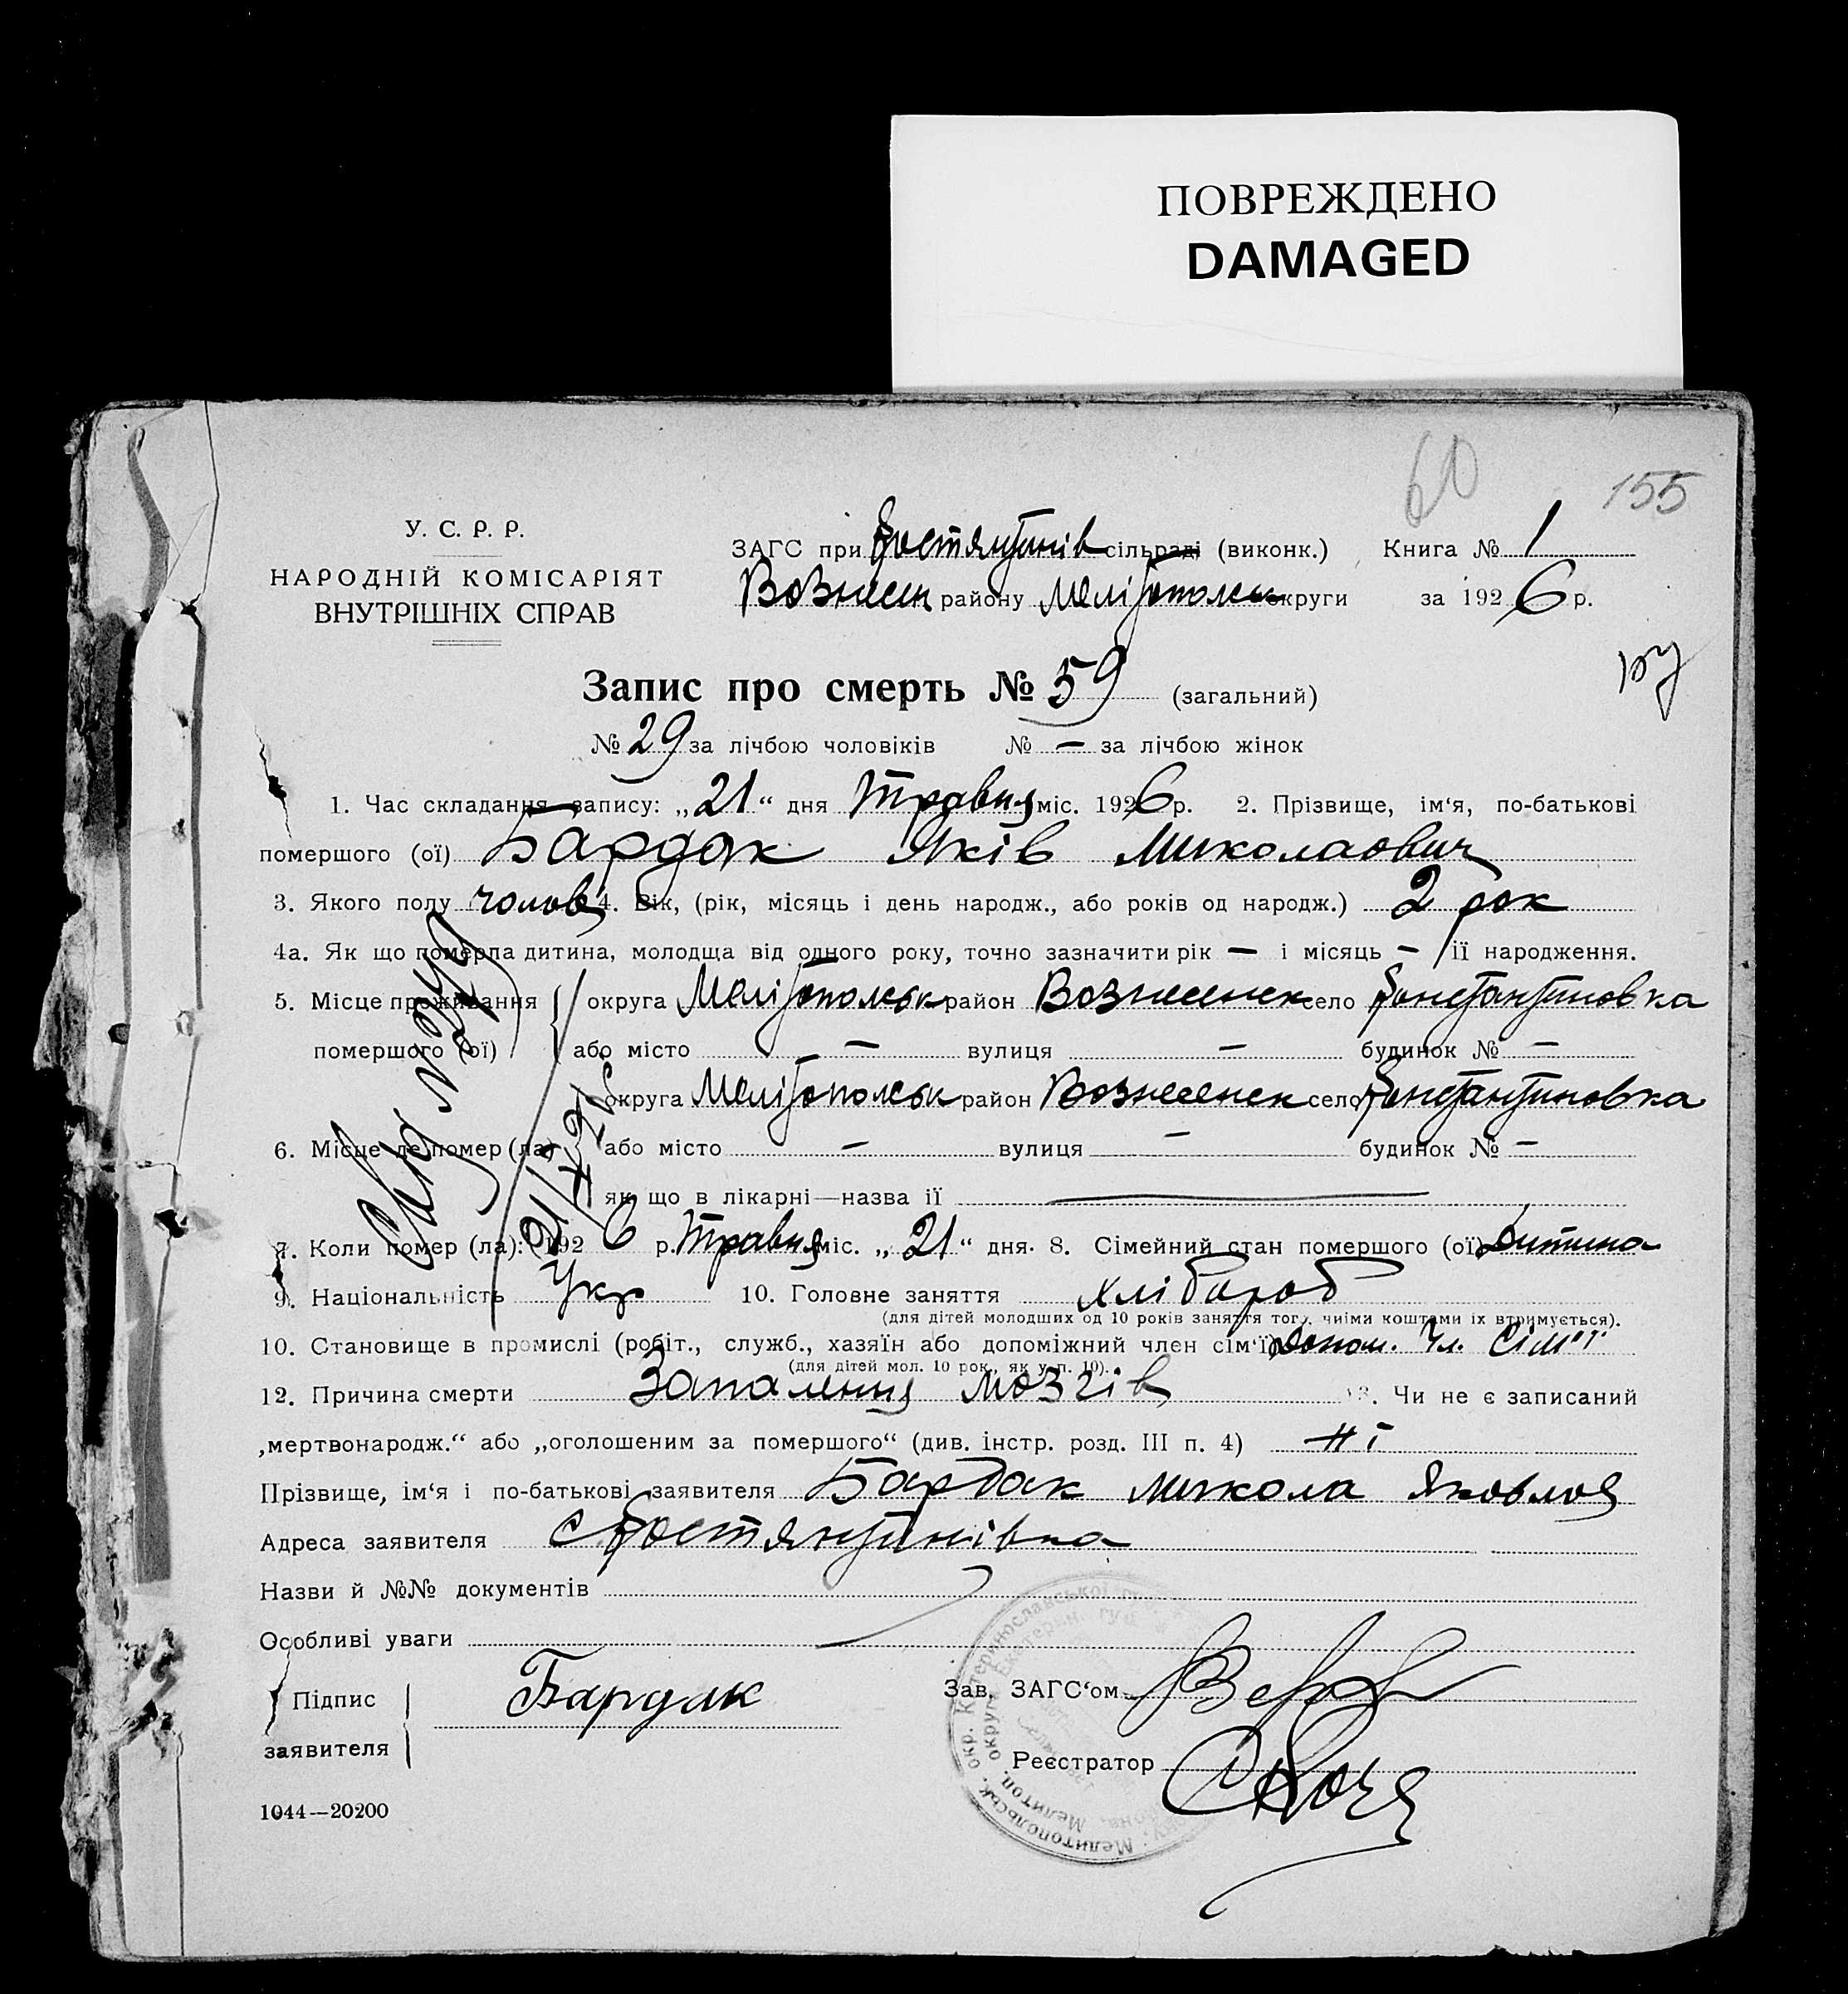 ПОВРЕЖДЕНО
DAMAGED
60 155
У. С. Р. Р.
НАРОДНІЙ КОМІСАРІЯТ
ВНУТРІШНІХ СПРАВ
ЗАГС при Костянтинів сільраді (виконк.) Книга № 1
Вознесен району Мелітопольськ округи за 1926 р.
Запис про смерть № 59 (загальний)
№ 29 за лічбою чоловіків № — за лічбою жінок
1. Час складання запису: „21“ дня Травня міс. 1926 р. 2. Прізвище, ім‘я, по-батькові
помершого (ої) Бардак Яків Миколаович
3. Якого полу чолов 4. Вік, (рік, місяць і день народж., або років од народж.) 2 рок
4а. Як що померла дитина, молодща від одного року, точно зазначити рік — і місяць — її народження.
5. Місце проживання округа Мелітопольськ район Вознесенск село Константиновка
помершого (ої) або місто — вулиця — будинок № —
округа Мелітопольськ район Вознесенск село Константиновка
6. Місце де помер (ла) або місто — вулиця — будинок № —
як що в лікарні—назва її
7. Коли помер (ла): 1926 р. Травня міс. „21“ дня. 8. Сімейний стан помершого (ої) Дитина
9. Національність Укр 10. Головне заняття хлібороб
(для дітей молодших од 10 років заняття того, чиїми коштами їх втримується).
10. Становище в промислі (робіт., служб., хазяїн або допоміжний член сім‘ї) допом. чл. сім'ї
(для дітей мол. 10 рок., як у п. 10).
12. Причина смерти Запалення мозгів 13. Чи не є записаний
„мертвонародж.“ або „оголошеним за помершого“ (див. інстр. розд. III п. 4) ні
Прізвище, ім‘я і по-батькові заявителя Бардак Микола Яковлов
Адреса заявителя с Костянтинівка
Назви й №№ документів
Особливі уваги
Підпис Бардак Зав. ЗАГС‘ом
заявителя
Реєстратор
1044—20200